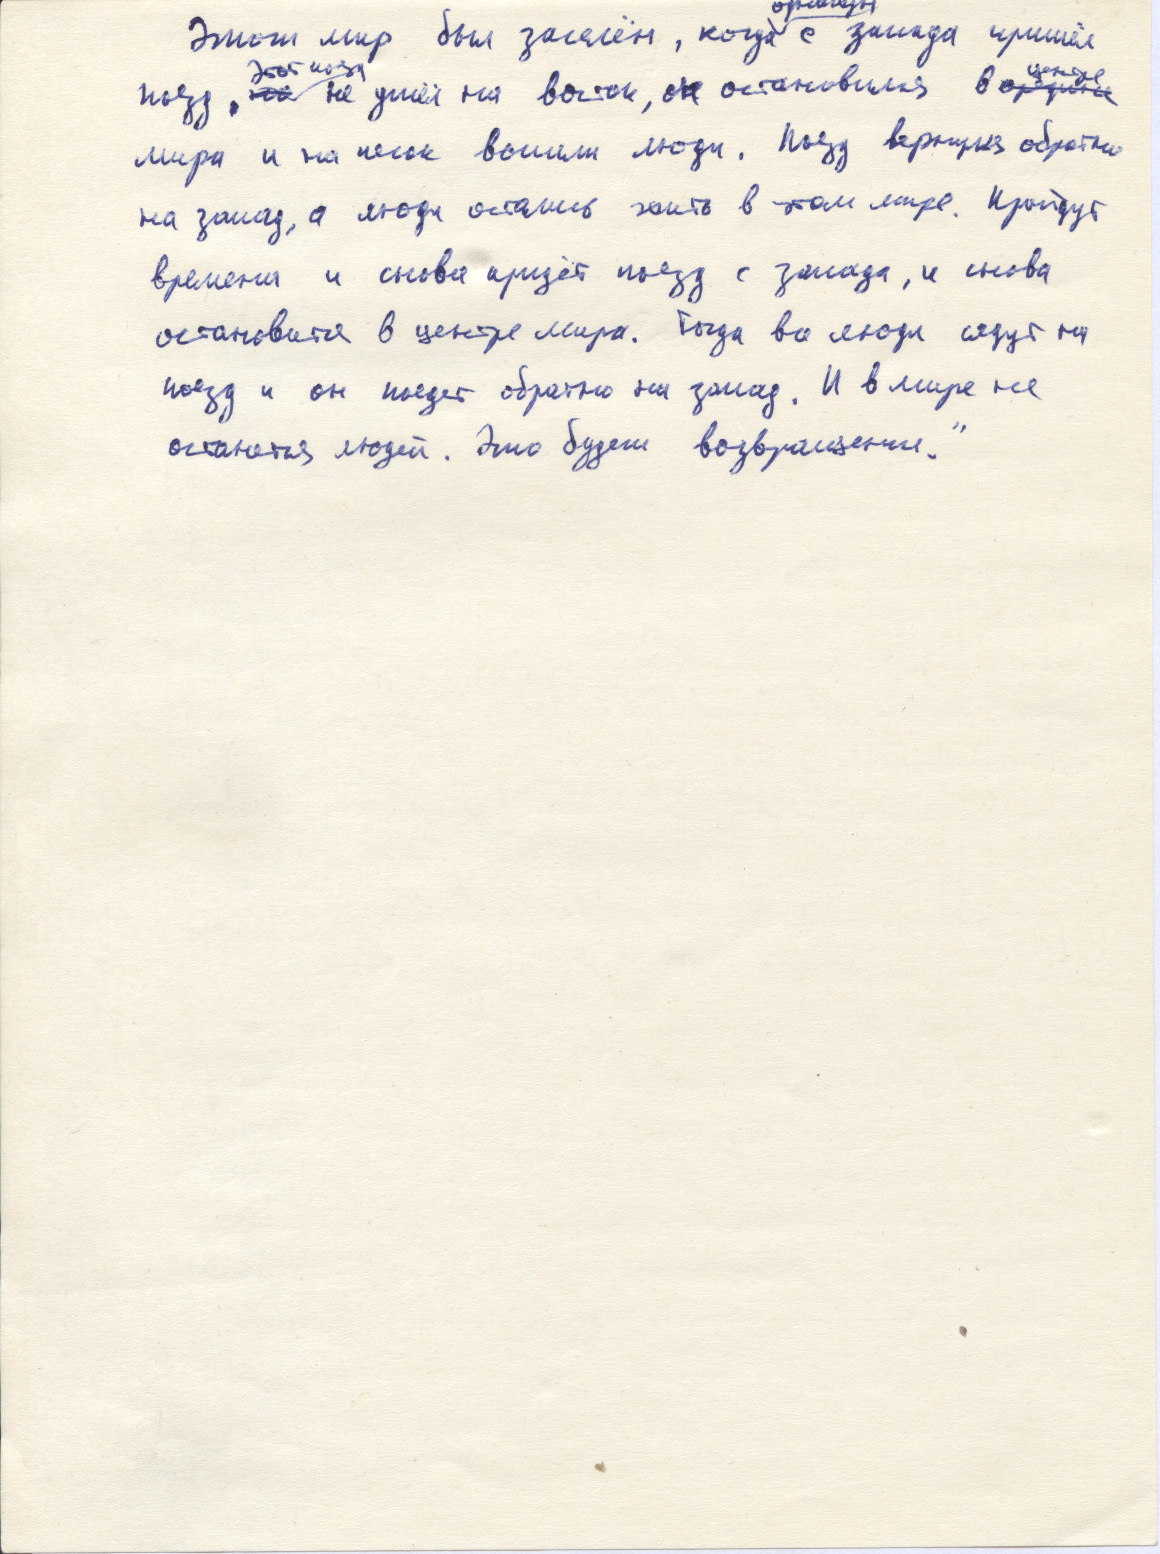 однажды
Этот мир был заселён, когда с запада пришёл
Этот поезд центре
поезд, но не ушёл на восток, он остановился в середине
мира и на песок вышли люди. Поезд вернулся обратно
на запад, а люди остались жить в этом мире. Пройдут
времена и снова придёт поезд с запада, и снова
остановится в центре мира. Тогда все люди сядут на
поезд и он поедет обратно на запад. И в мире не
останется людей. Это будет возвращение."